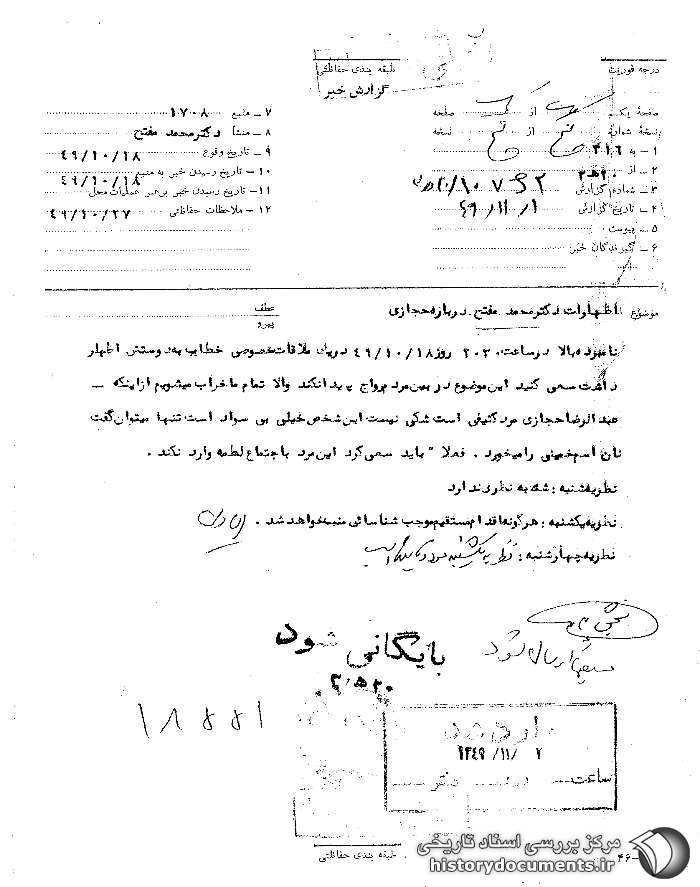 درجه فوریت
طبقه بندی حفاظتی
گزارش خبر
صفحهٔ یک از یک صفحه
نسخهٔ شماره از نسخه
۱ - به ۳۱۶
۲ - از ۲۵۲۰
۳ - شماره گزارش ۱۰۷۶۲/
۴ - تاریخ گزارش ۴۹/۱۱/۱
۵ - پیوست
۶ - گیرندگان خبر
۷ - منبع ۱۷۰۸
۸ - منشأ دکتر محمد مفتح
۹ - تاریخ وقوع ۴۹/۱۰/۱۸
۱۰ - تاریخ رسیدن خبر به منبع ۴۹/۱۰/۱۸
۱۱ - تاریخ رسیدن خبر به رهبر عملیات محل
۱۲ - ملاحظات حفاظتی ۴۹/۱۰/۲۷
موضوع : اظهارات دکتر محمد مفتح درباره حجازی
عطف
پیرو
نامبرده بالا در ساعت ۲۰۳۰ روز ۴۹/۱۰/۱۸ در یک ملاقات خصوصی خطاب به دوستش اظهار
داشت سعی کنید این موضوع در بین مردم رواج پیدا نکند والا تمام ما خراب میشویم از اینکه -
عبدالرضا حجازی مرد کثیفی است شکی نیست این شخص خیلی بی سواد است تنها میتوان گفت
نان اسم خمینی را میخورد . فعلا" باید سعی کرد این مرد با جتماع لطمه وارد نکند .
نظریه شنبه : شنبه نظری ندارد
نظریه یکشنبه : هرگونه اقدام مستقیم موجب شناسائی منبع خواهد شد .
نظریه چهارشنبه : نظریه یکشنبه مورد تایید است
بایگانی شود
۲۵۲۰
۱۸۸۸۱
وارده شد
۱۳۴۹/۱۱/ ۲
ساعت دفتر
طبقه بندی حفاظتی
۴۶-
مرکز بررسی اسناد تاریخی
historydocuments.ir